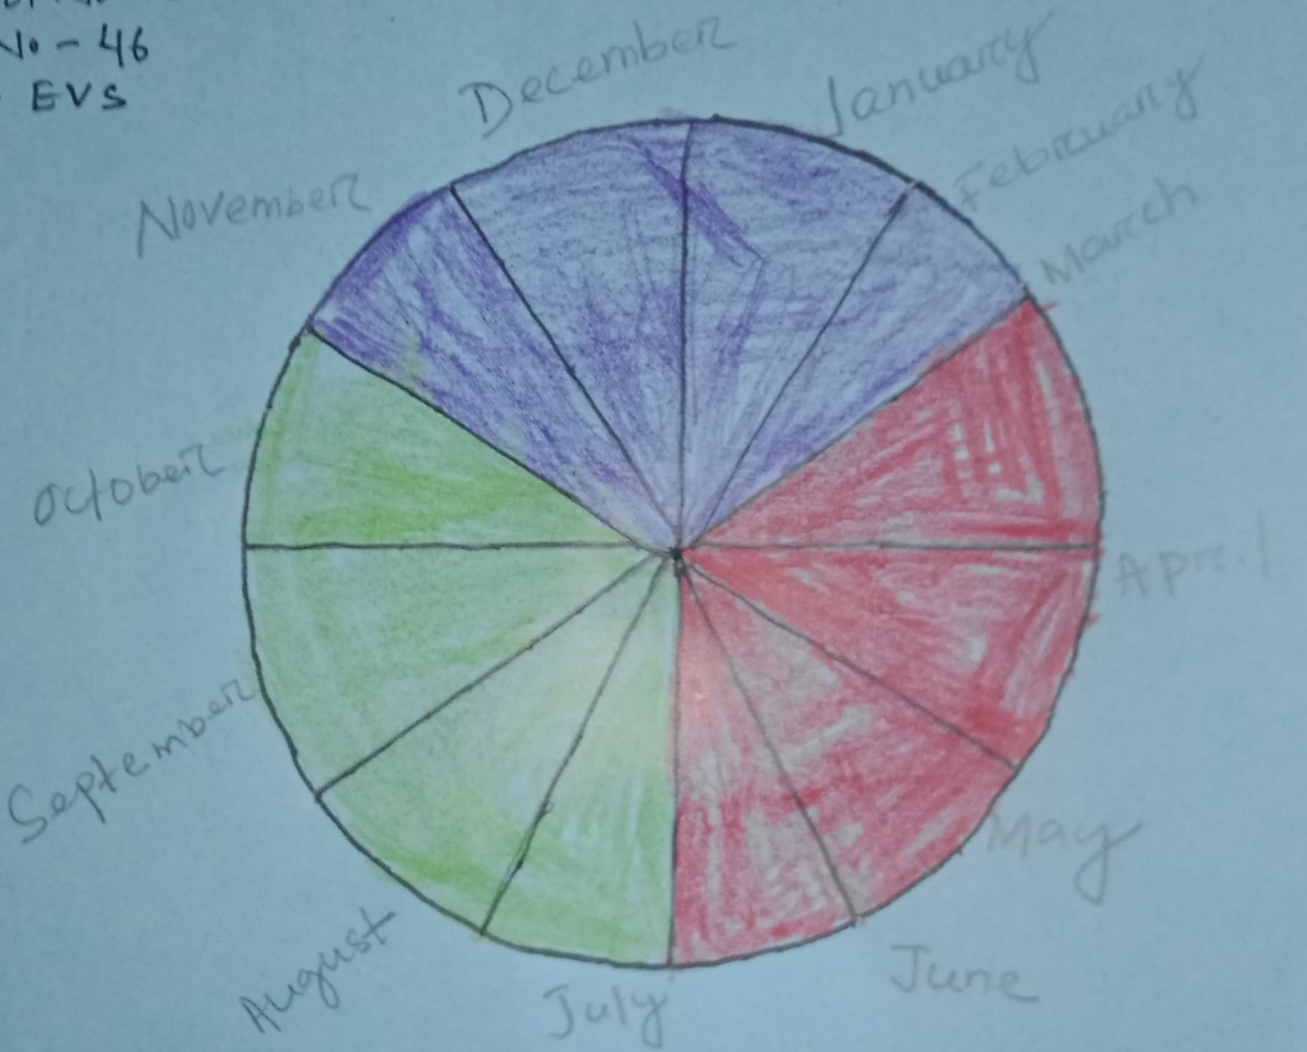 No - 46
EVS
December
January
February
March
April
May
June
July
August
September
October
November